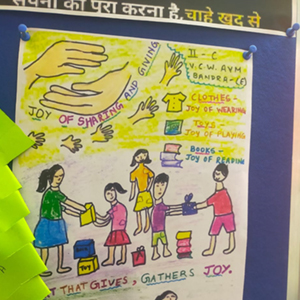 करना है, चाहे खुद से
II - C
V.C.W. AVM
BANDRA-(E)
JOY OF SHARING AND GIVING
CLOTHES-
JOY OF WEARING
TOYS-
JOY OF PLAYING
BOOKS-
JOY OF READING
THAT GIVES, GATHERS JOY.